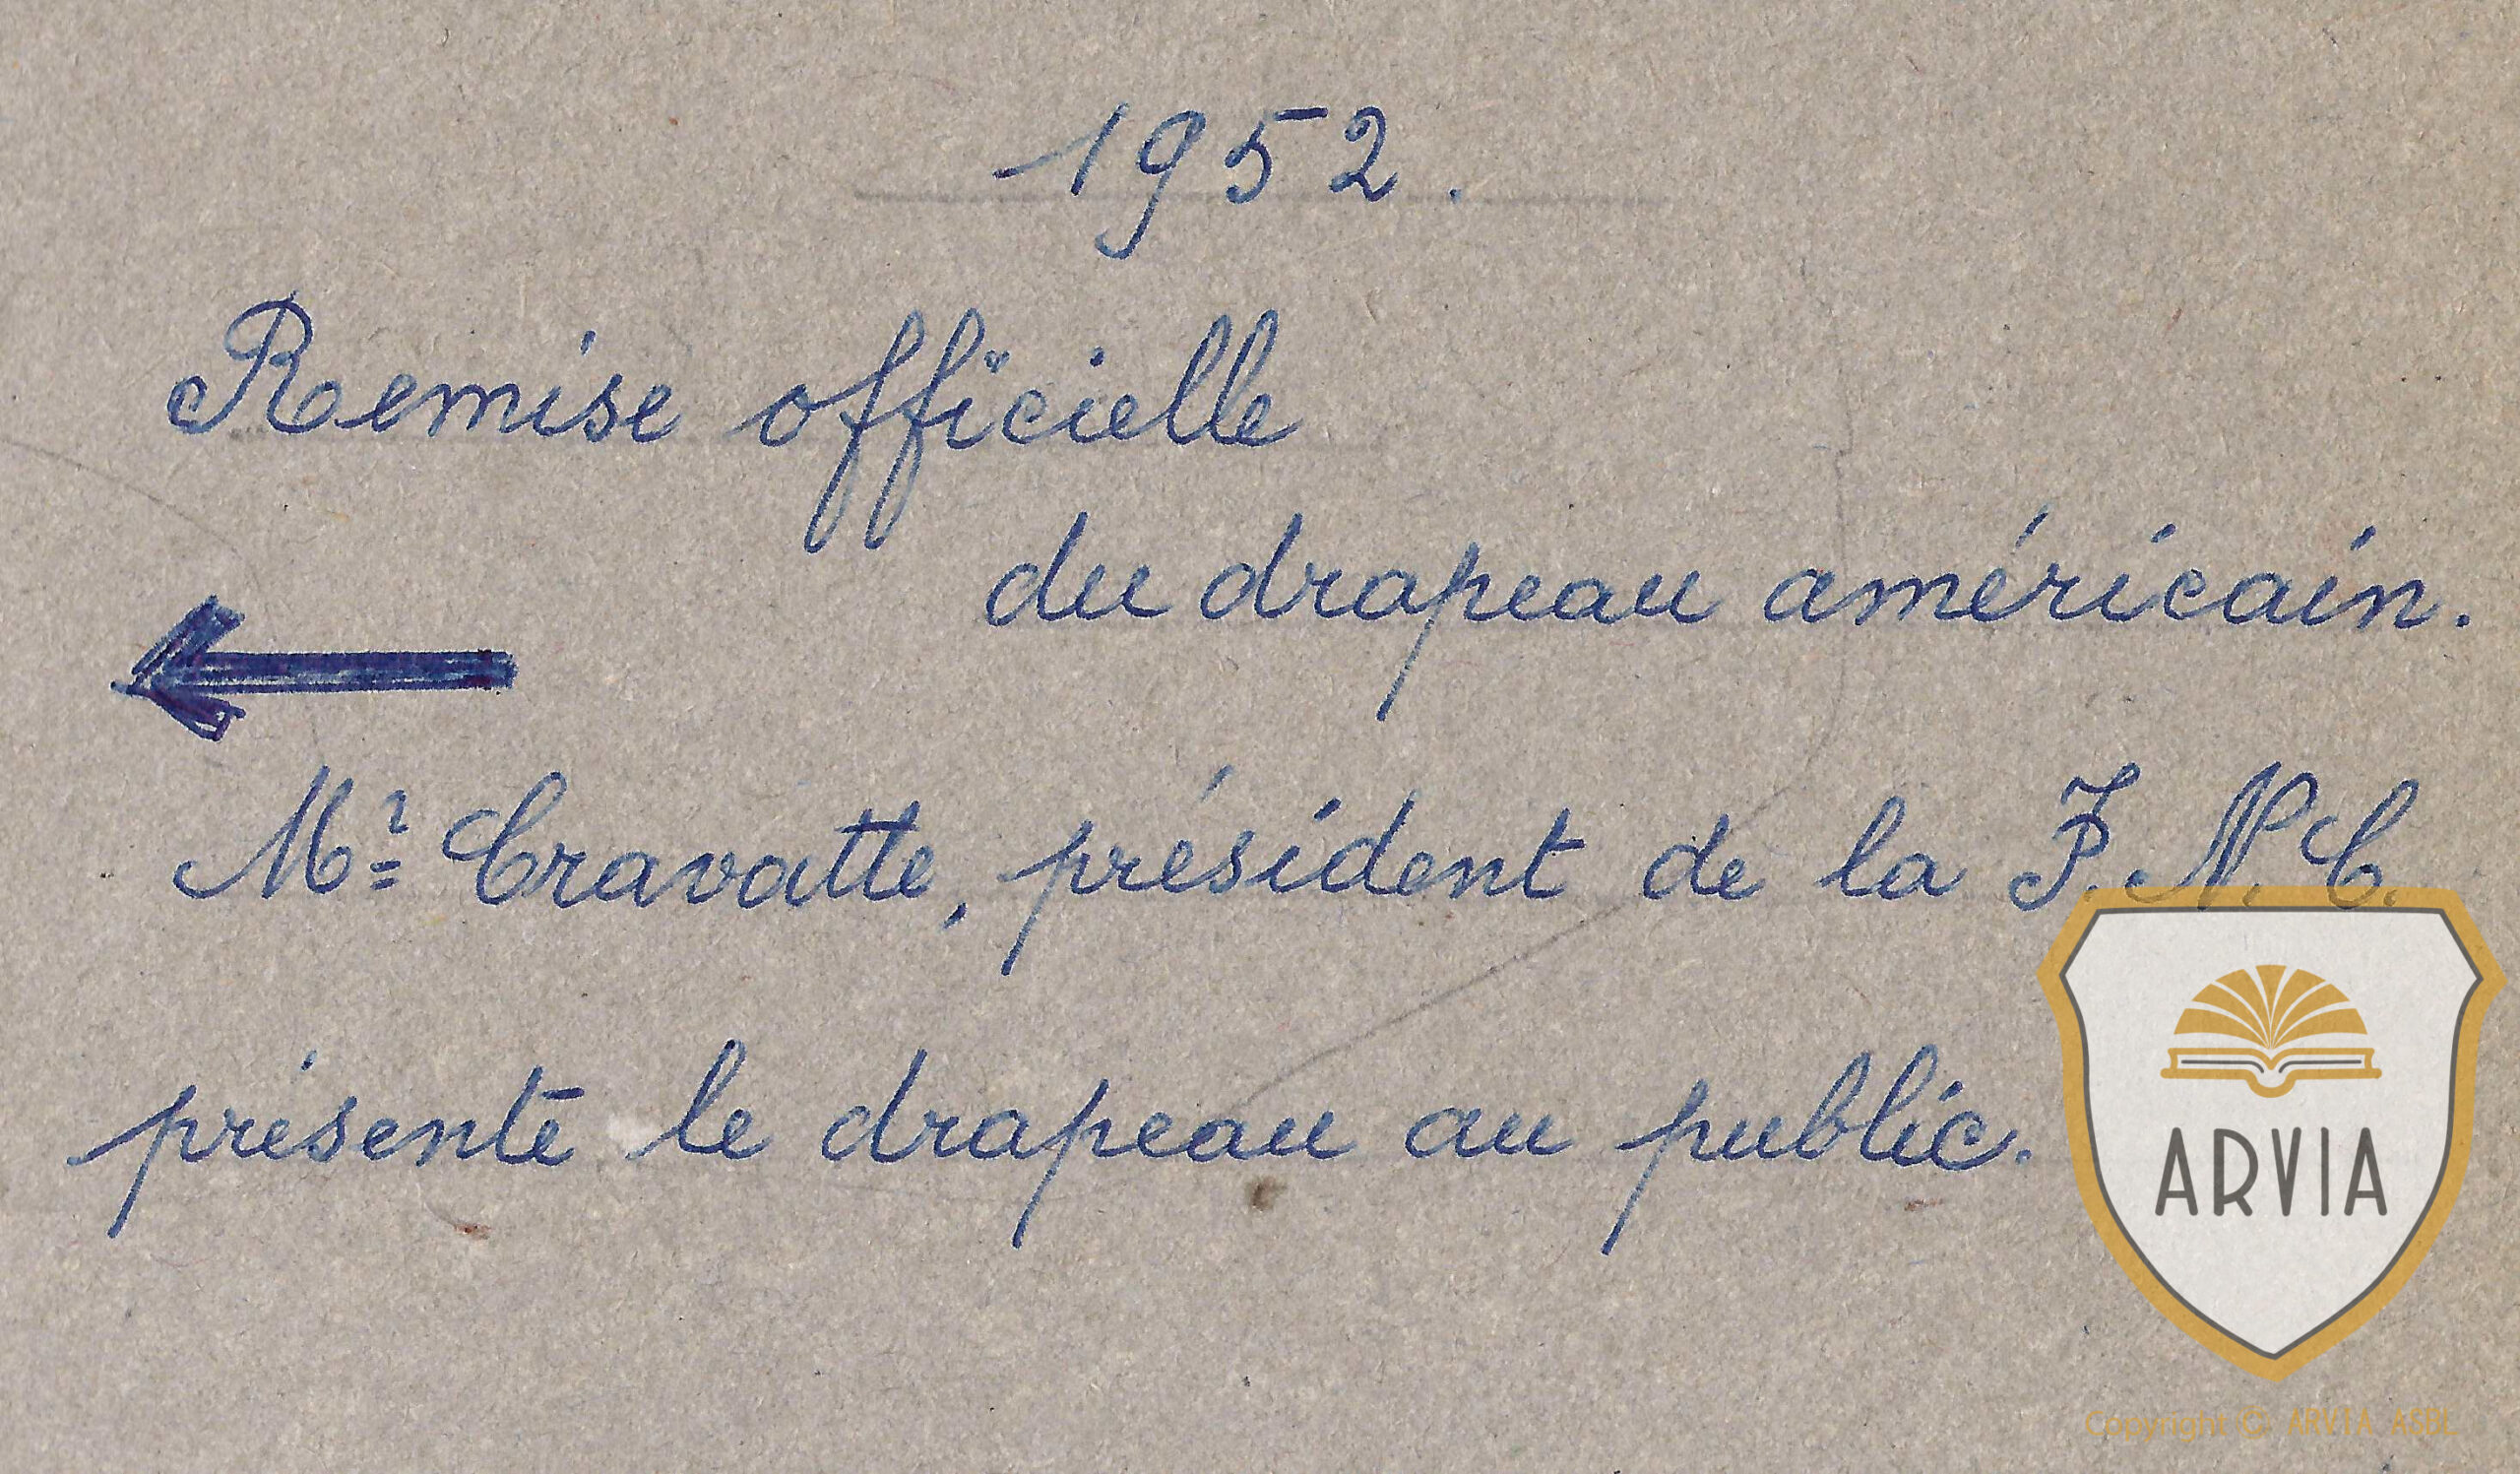 1952.
Remise officielle
du drapeau américain.
Mr Cravatte, président de la F.N.C.
présente le drapeau au public.
ARVIA
Copyright © ARVIA ASBL